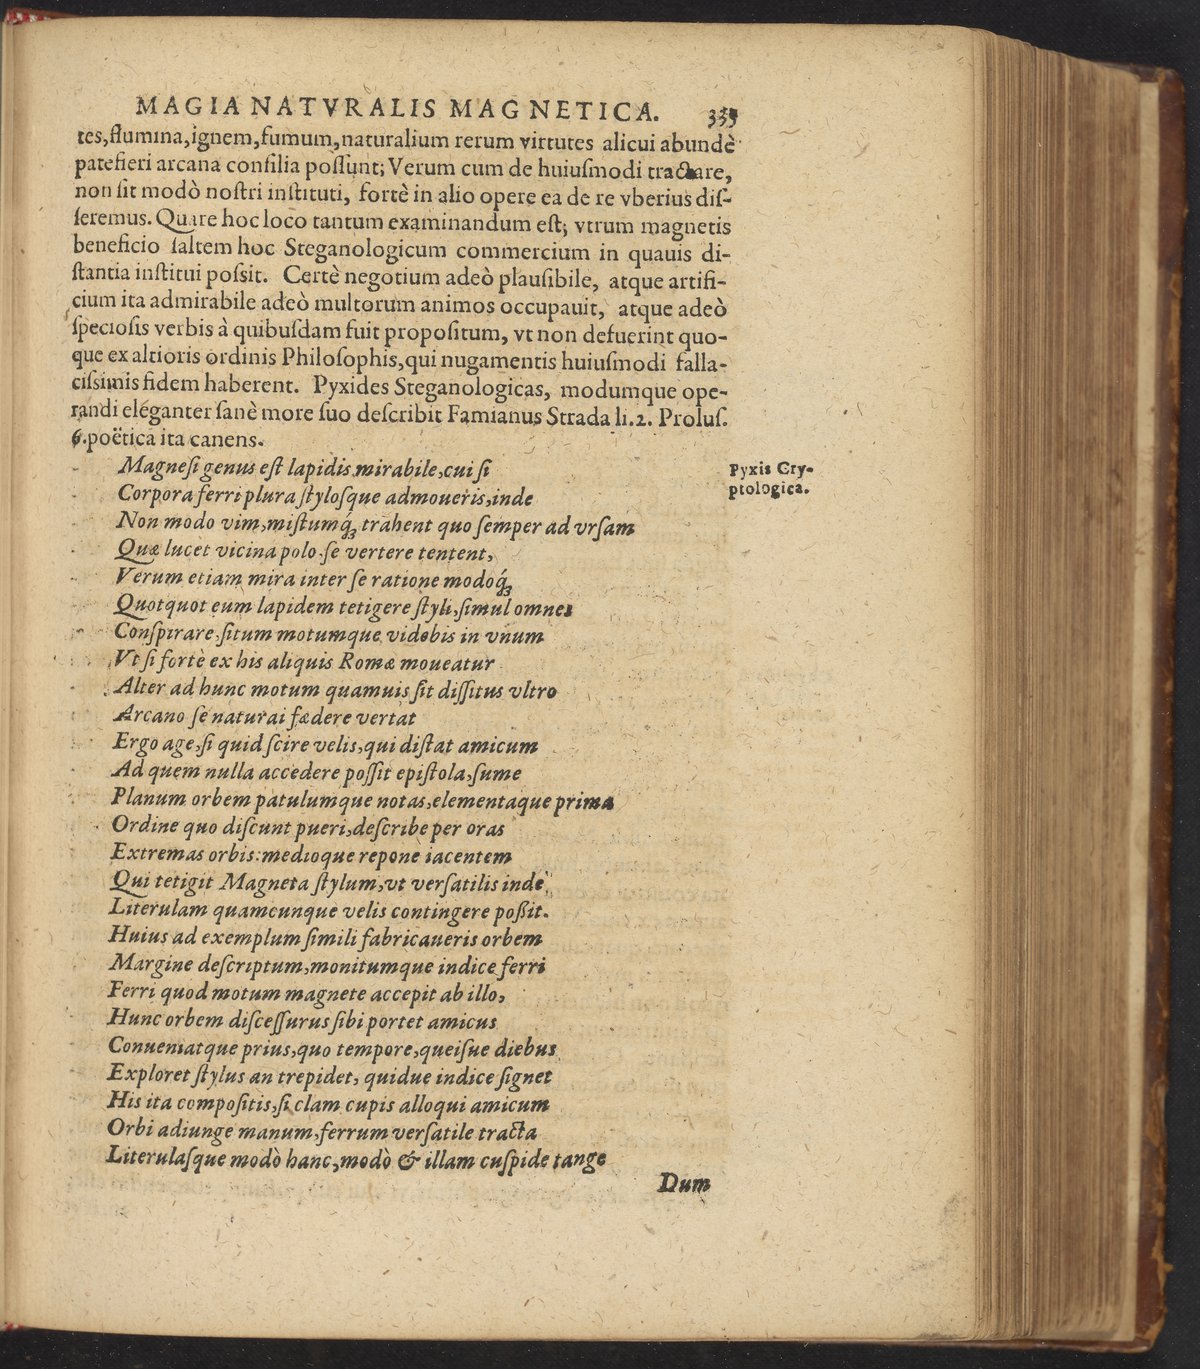 MAGIA NATVRALIS MAGNETICA. 335
tes,flumina,ignem,fumum,naturalium rerum virtutes alicui abundè
patefieri arcana consilia possunt; Verum cum de huiuſmodi tractare,
non ſit modò noſtri inſtituti, fortè in alio opere ea de re vberius diſ-
ſeremus. Quare hoc loco tantum examinandum eſt; vtrum magnetis
beneficio ſaltem hoc Steganologicum commercium in quauis di-
ſtantia inſtitui poſsit. Certè negotium adeò plauſibile, atque artifi-
cium ita admirabile adeò multorum animos occupauit, atque adeò
ſpeciosis verbis à quibuſdam fuit propoſitum, vt non defuerint quo-
que ex altioris ordinis Philoſophis,qui nugamentis huiuſmodi falla-
ciſsimis fidem haberent. Pyxides Steganologicas, modumque ope-
randi eleganter ſanè more ſuo deſcribit Famianus Strada li.2. Proluſ.
6.poëtica ita canens.
Magneſi genus eſt lapidis mirabile,cui ſi
Pyxis Cry-
ptologica.
Corpora ferri plura ſtyloſque admoueris,inde
Non modo vim,miſtumq́ꝫ trahent quo ſemper ad vrſam
Quæ lucet vicina polo ſe vertere tentent,
Verum etiam mira inter ſe ratione modoq́ꝫ
Quotquot eum lapidem tetigere ſtyli,ſimul omnes
Conſpirare ſitum motumque videbis in vnum
Vt ſi fortè ex his aliquis Romæ moueatur
Alter ad hunc motum quamuis ſit diſſitus vltro
Arcano ſe naturai fædere vertat
Ergo age,ſi quid ſcire velis,qui diſtat amicum
Ad quem nulla accedere poſſit epiſtola,ſume
Planum orbem patulumque notas,elementaque prima
Ordine quo diſcunt pueri,deſcribe per oras
Extremas orbis:medioque repone iacentem
Qui tetigit Magneta ſtylum,vt verſatilis inde
Literulam quamcunque velis contingere poßit.
Huius ad exemplum ſimili fabricaueris orbem
Margine deſcriptum,monitumque indice ferri
Ferri quod motum magnete accepit ab illo,
Hunc orbem diſceſſurus ſibi portet amicus
Conueniatque prius,quo tempore,queiſue diebus
Exploret ſtylus an trepidet, quidue indice ſignet
His ita compoſitis,ſi clam cupis alloqui amicum
Orbi adiunge manum,ferrum verſatile tracta
Literulaſque modò hanc,modò & illam cuſpide tange
Dum